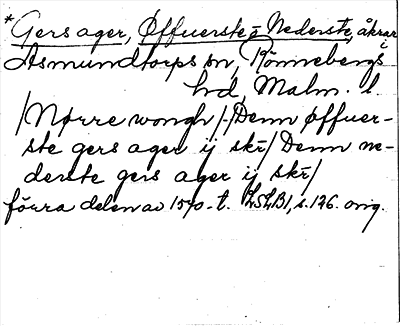 *Gers ager, Øffuerste = Nederste, åkrar i
Asmundtorps sn, Rönnebergs
hd, Malm. l.
/Nørre wongh/. /Denn øffuer-
ste gers ager ij skr̄/ Denn ne-
derste gers ager ij skr̄/
förra delen av 1570-t. LSLB1, s. 126. orig.